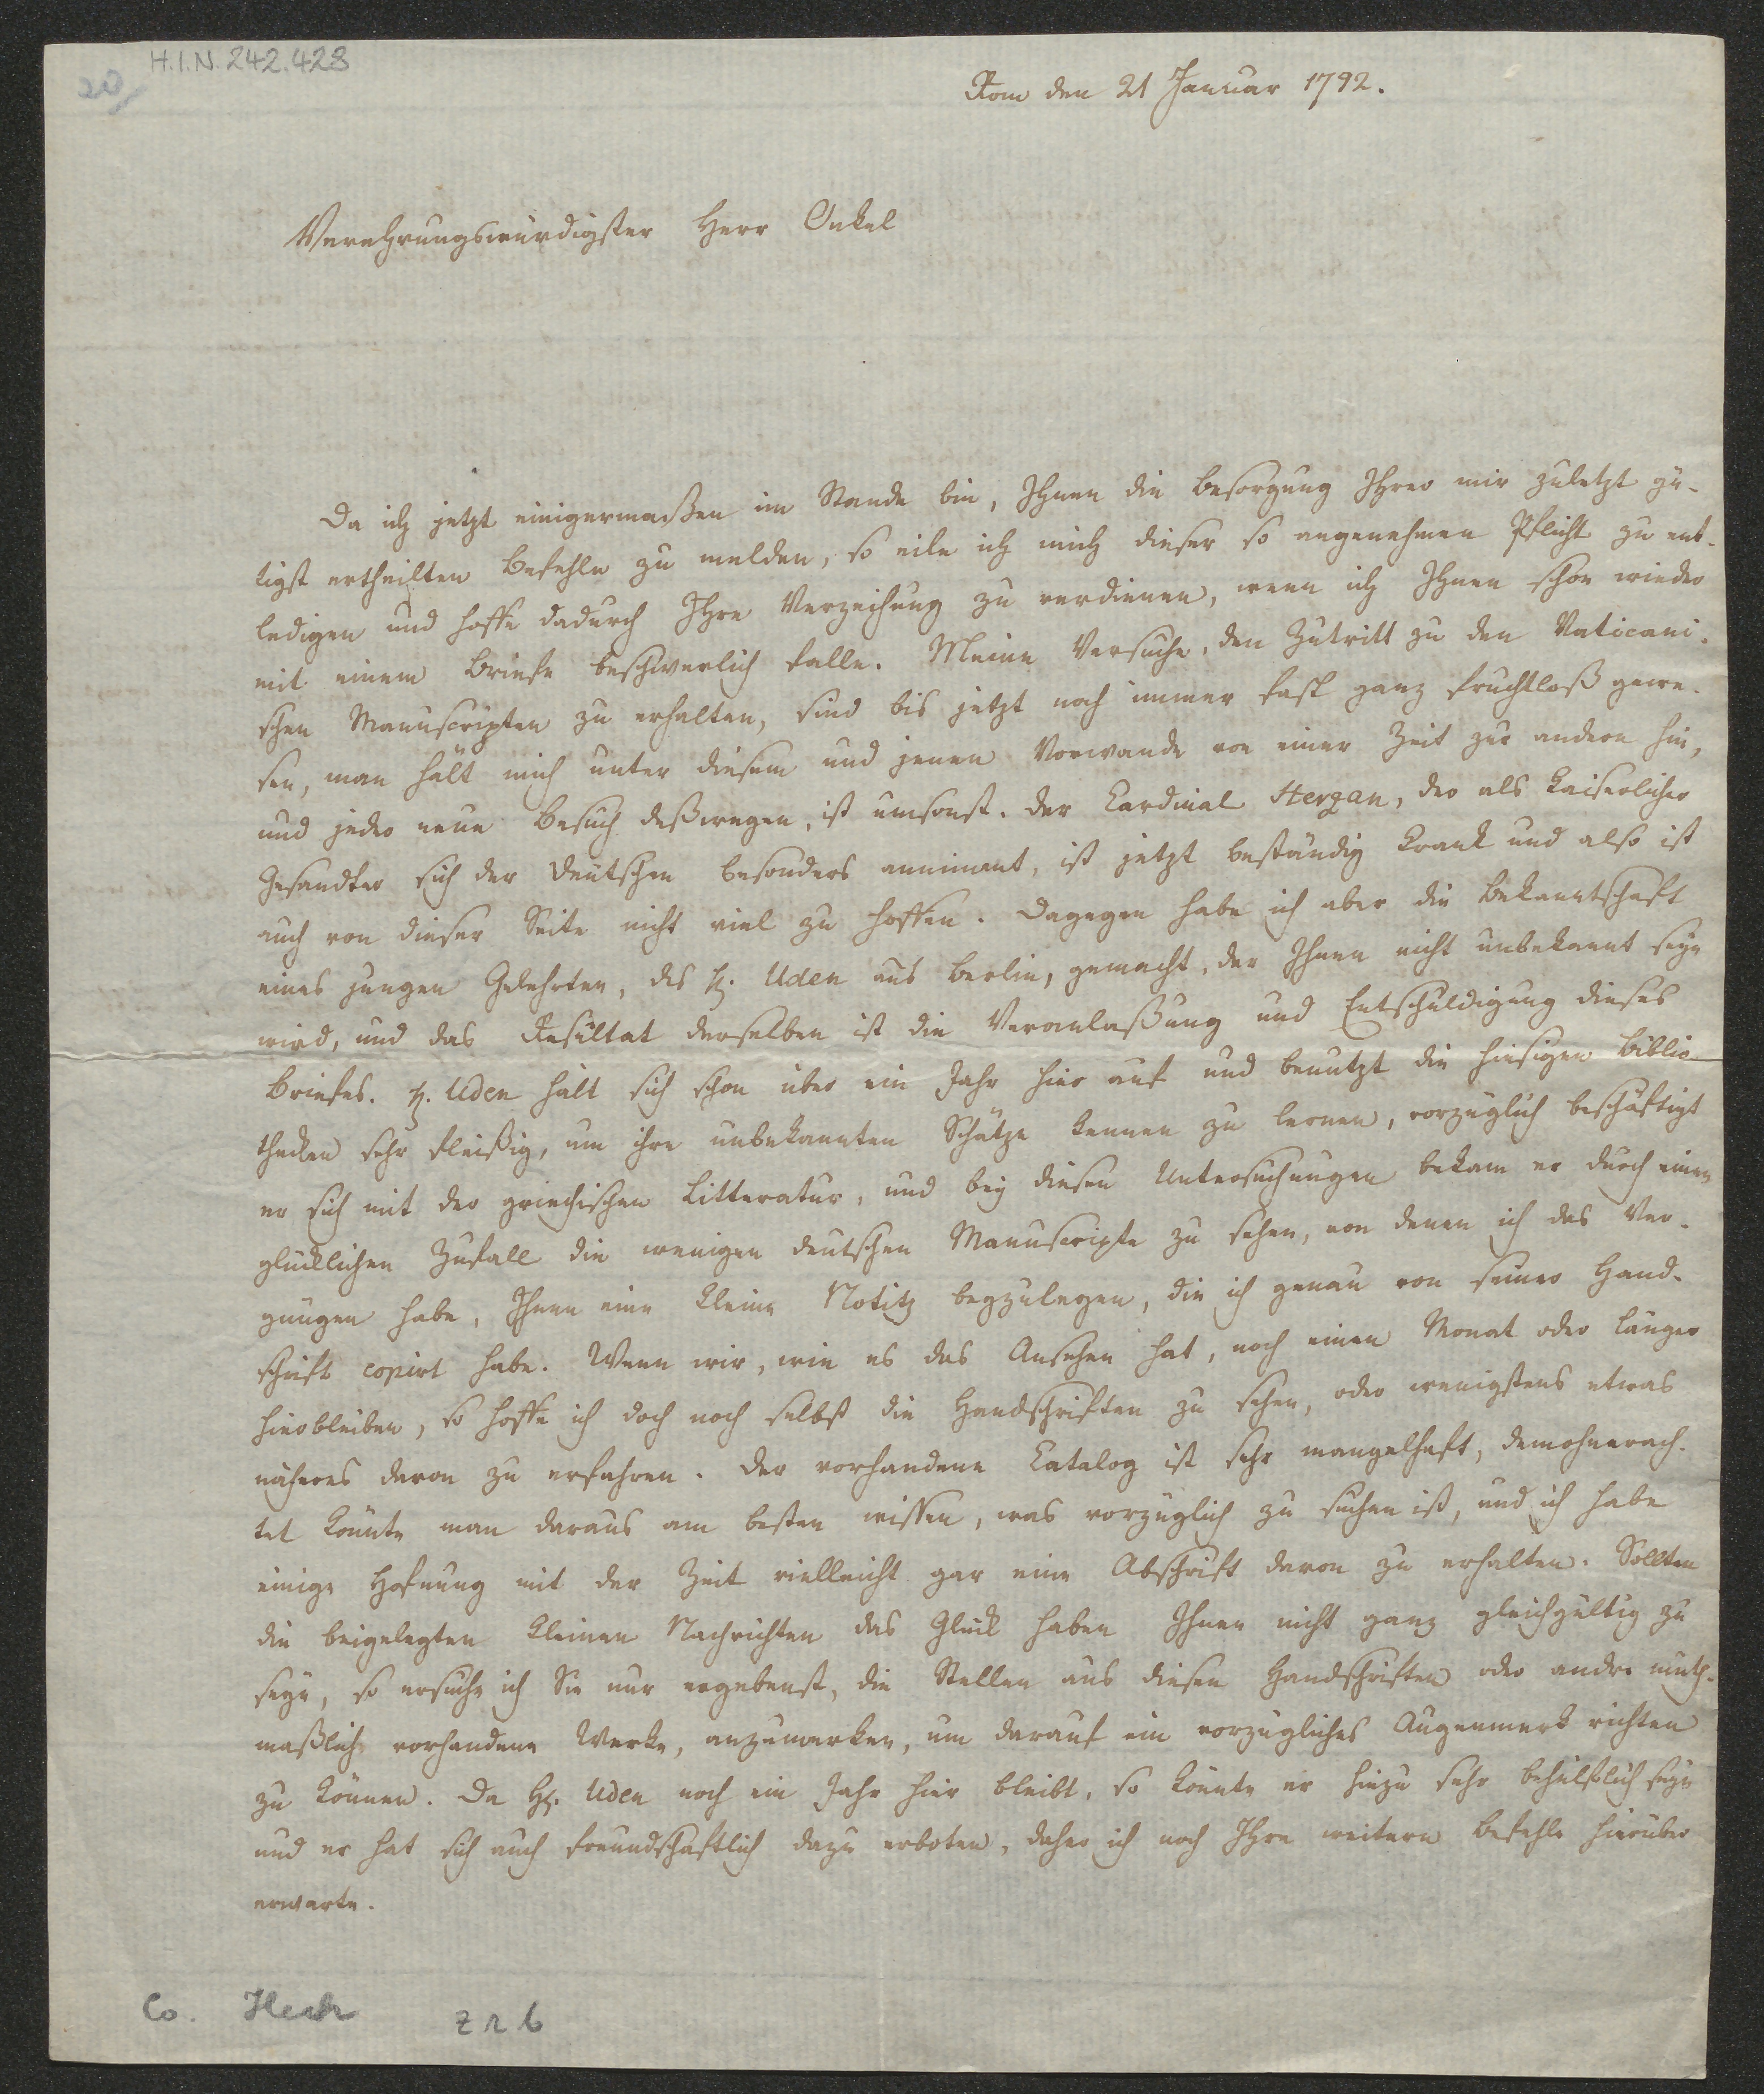 H.I.N. 242.428
20
Rom den 21 Januar 1792.
Verehrungswürdigster Herr Onkel
Da ich jetzt einigermaßen im Stande bin, Ihnen die Besorgung Ihrer mir zuletzt gü-
tigst ertheilten Befehle zu melden, so eile ich mich dieser so angenehmen Pflicht zu ent-
ledigen und hoffe dadurch Ihre Verzeihung zu verdienen, wenn ich Ihnen schon wieder
mit einem Briefe beschwerlich falle. Meine Versuche, den Zutritt zu den Vaticani-
schen Manuscripten zu erhalten, sind bis jetzt noch immer fast ganz fruchtloß gewe-
sen, man hält mich unter diesem und jenen Vorwande von einer Zeit zur andern hin,
und jeder neue Besuch deßwegen, ist umsonst. Der Cardinal Herzan, der als Kaiserlicher
Gesandter sich der Deutschen besonders annimmt, ist jetzt beständig krank und also ist
auch von dieser Seite nicht viel zu hoffen. Dagegen habe ich aber die Bekanntschaft
eines jungen Gelehrten, des H. Uden aus Berlin, gemacht, der Ihnen nicht unbekannt seyn
wird, und das Resultat derselben ist die Veranlaßung und Entschuldigung dieses
Briefes. H. Uden hält sich schon über ein Jahr hier auf und benutzt die hiesigen Biblio-
theken sehr fleißig, um ihre unbekannten Schätze kennen zu lernen, vorzüglich beschäftigt
er sich mit der griechischen Litteratur, und bey diesen Untersuchungen bekam er durch einen
glücklichen Zufall die wenigen deutschen Manuscripte zu sehen, von denen ich das Ver-
gnügen habe, Ihnen eine kleine Notitz beyzulegen, die ich genau von seiner Hand-
schrift copirt habe. Wenn wir, wie es das Ansehen hat, noch einen Monat oder länger
hierbleiben, so hoffe ich doch noch selbst die Handschriften zu sehen, oder wenigstens etwas
näheres davon zu erfahren. Der vorhandene Catalog ist sehr mangelhaft, demohnerach-
tet könnte man daraus am besten wissen, was vorzüglich zu suchen ist, und ich habe
einige Hofnung mit der Zeit vielleicht gar eine Abschrift davon zu erhalten. Sollten
die beigelegten kleinen Nachrichten das Glück haben Ihnen nicht ganz gleichgültig zu
seyn, so ersuche ich Sie nur ergebenst, die Stellen aus diesen Handschriften oder andre muth-
maßlich vorhandene Werke, anzumerken, um darauf ein vorzügliches Augenmerk richten
zu können. Da H. Uden noch ein Jahr hier bleibt, so könnte er hiezu sehr behülflich seyn
und er hat sich auch freundschaftlich dazu erboten, daher ich noch Ihre weitern Befehle hierüber
erwarte.
Co.